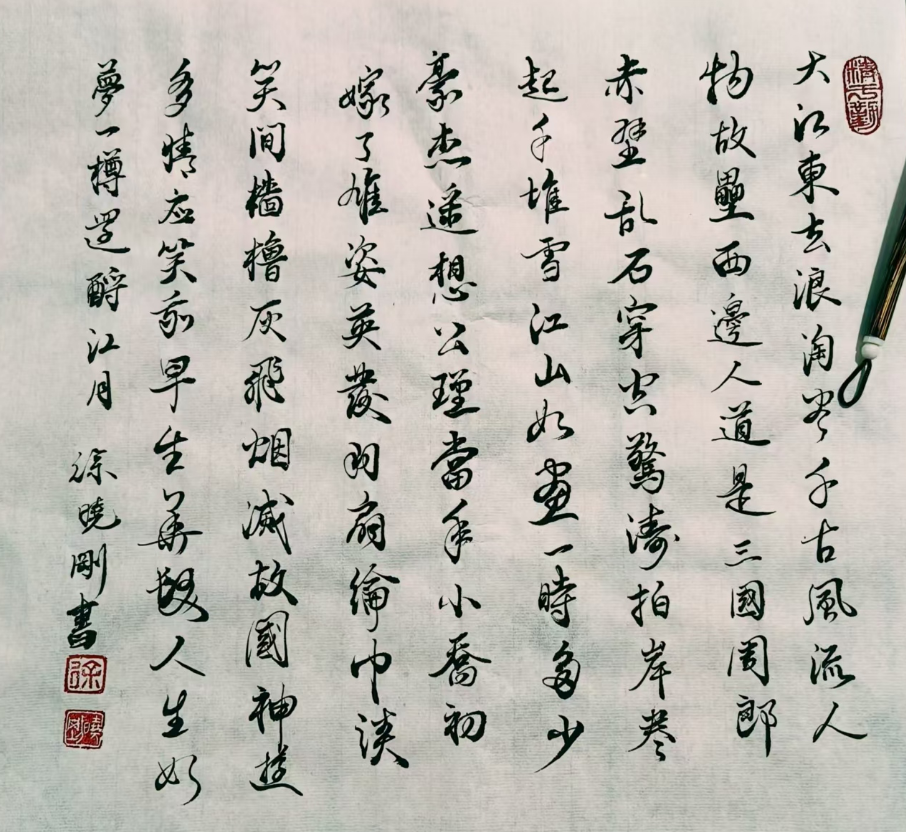 大江東去浪淘尽千古風流人
物故壘西邊人道是三國周郎
赤壁乱石穿空驚濤拍岸卷
起千堆雪江山如畫一時多少
豪杰遥想公瑾當年小喬初
嫁了雄姿英發羽扇綸巾談
笑間檣櫓灰飛烟滅故國神遊
多情应笑我早生華髮人生如
夢一樽還酹江月 徐曉剛書
徐
曉剛